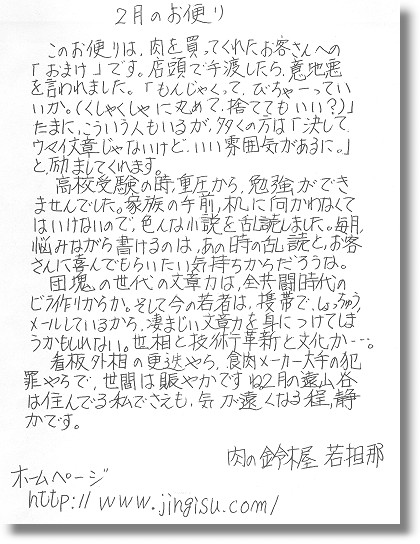 2月のお便り
このお便りは、肉を買ってくれたお客さんへの
「おまけ」です。店頭で手渡したら、意地悪
を言われました。「もんじゃくって、びちゃーってい
いか。(くしゃくしゃに丸めて、捨ててもいい?)」
たまに、こういう人もいるが、多くの方は「決して
ウマイ文章じゃないけど、いい雰囲気があるに。」
と励ましてくれます。
高校受験の時、重圧から、勉強ができ
ませんでした。家族の手前、机に向かわなくて
はいけないので、色んな小説を乱読しました。毎月、
悩みながら書けるのは、あの時の乱読と、お客
さんに喜んでもらいたい気持ちからだろうな。
団塊の世代の文章力は、全共闘時代の
ビラ作りからか。そして今の若者は、携帯で、しょっちゅう、
メールしているから、凄まじい文章力を身につけてしま
うかもしれない。世相と技術革新と文化か…。
看板外相の更迭やら、食肉メーカー大手の犯
罪やらで、世間は賑やかですね。2月の遠山谷
は住んでる私でさえも、気が遠くなる程、静
かです。
肉の鈴木屋 若旦那
ホームページ
http://www.jingisu.com/